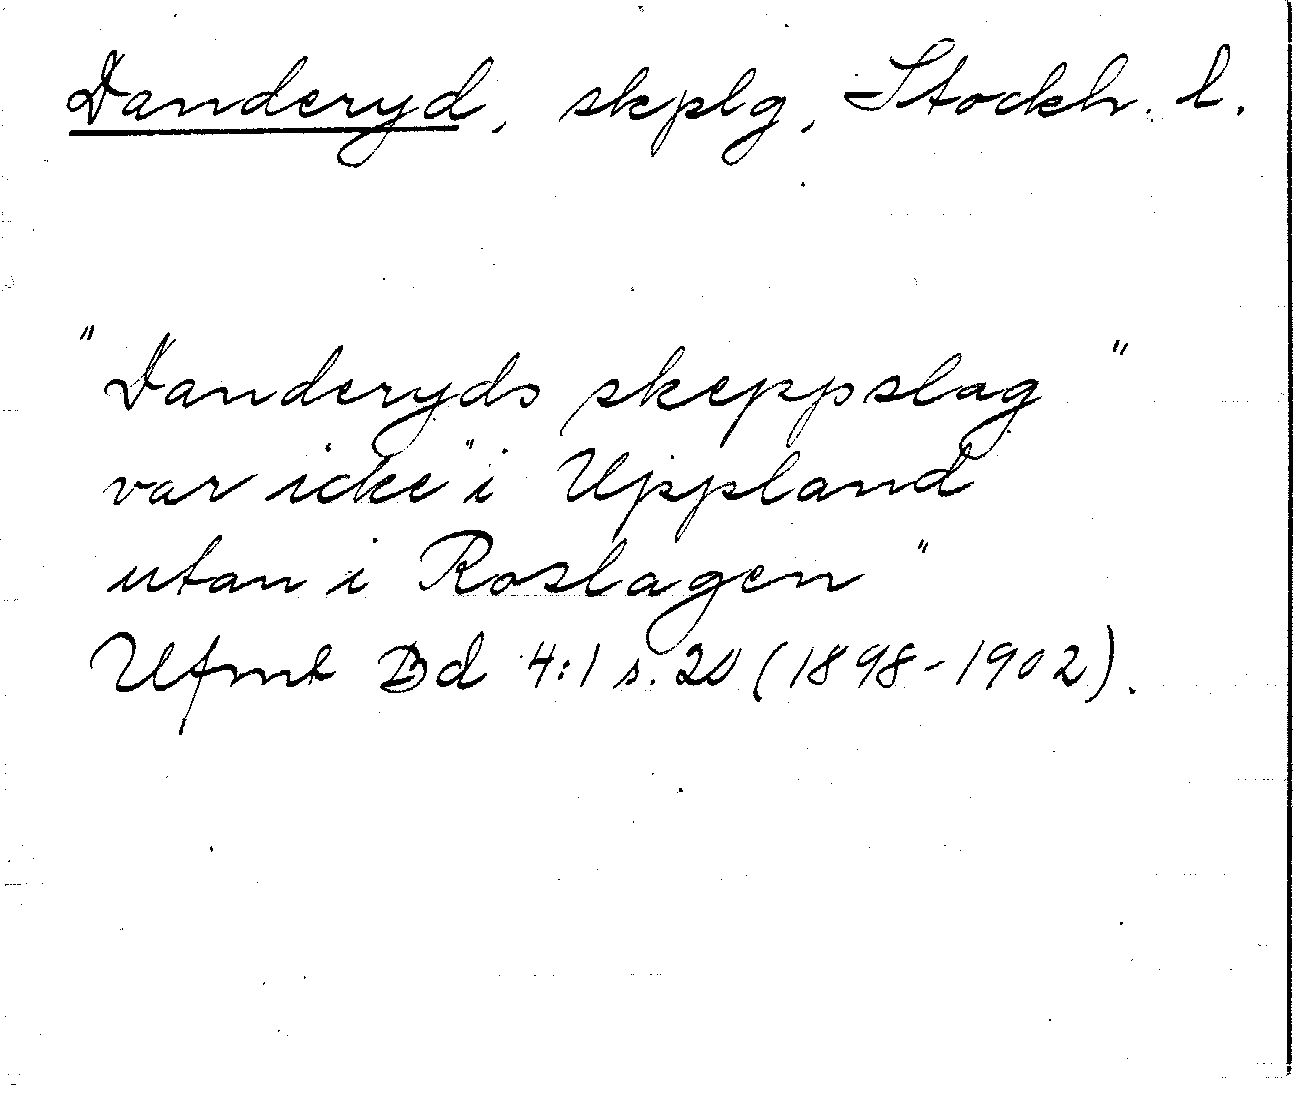 Danderyd, skplg, Stockh. l.
"Danderyds skeppslag"
var icke "i Uppland
utan i Roslagen"
Ufmt Bd 4:1 s. 20 (1898-1902).